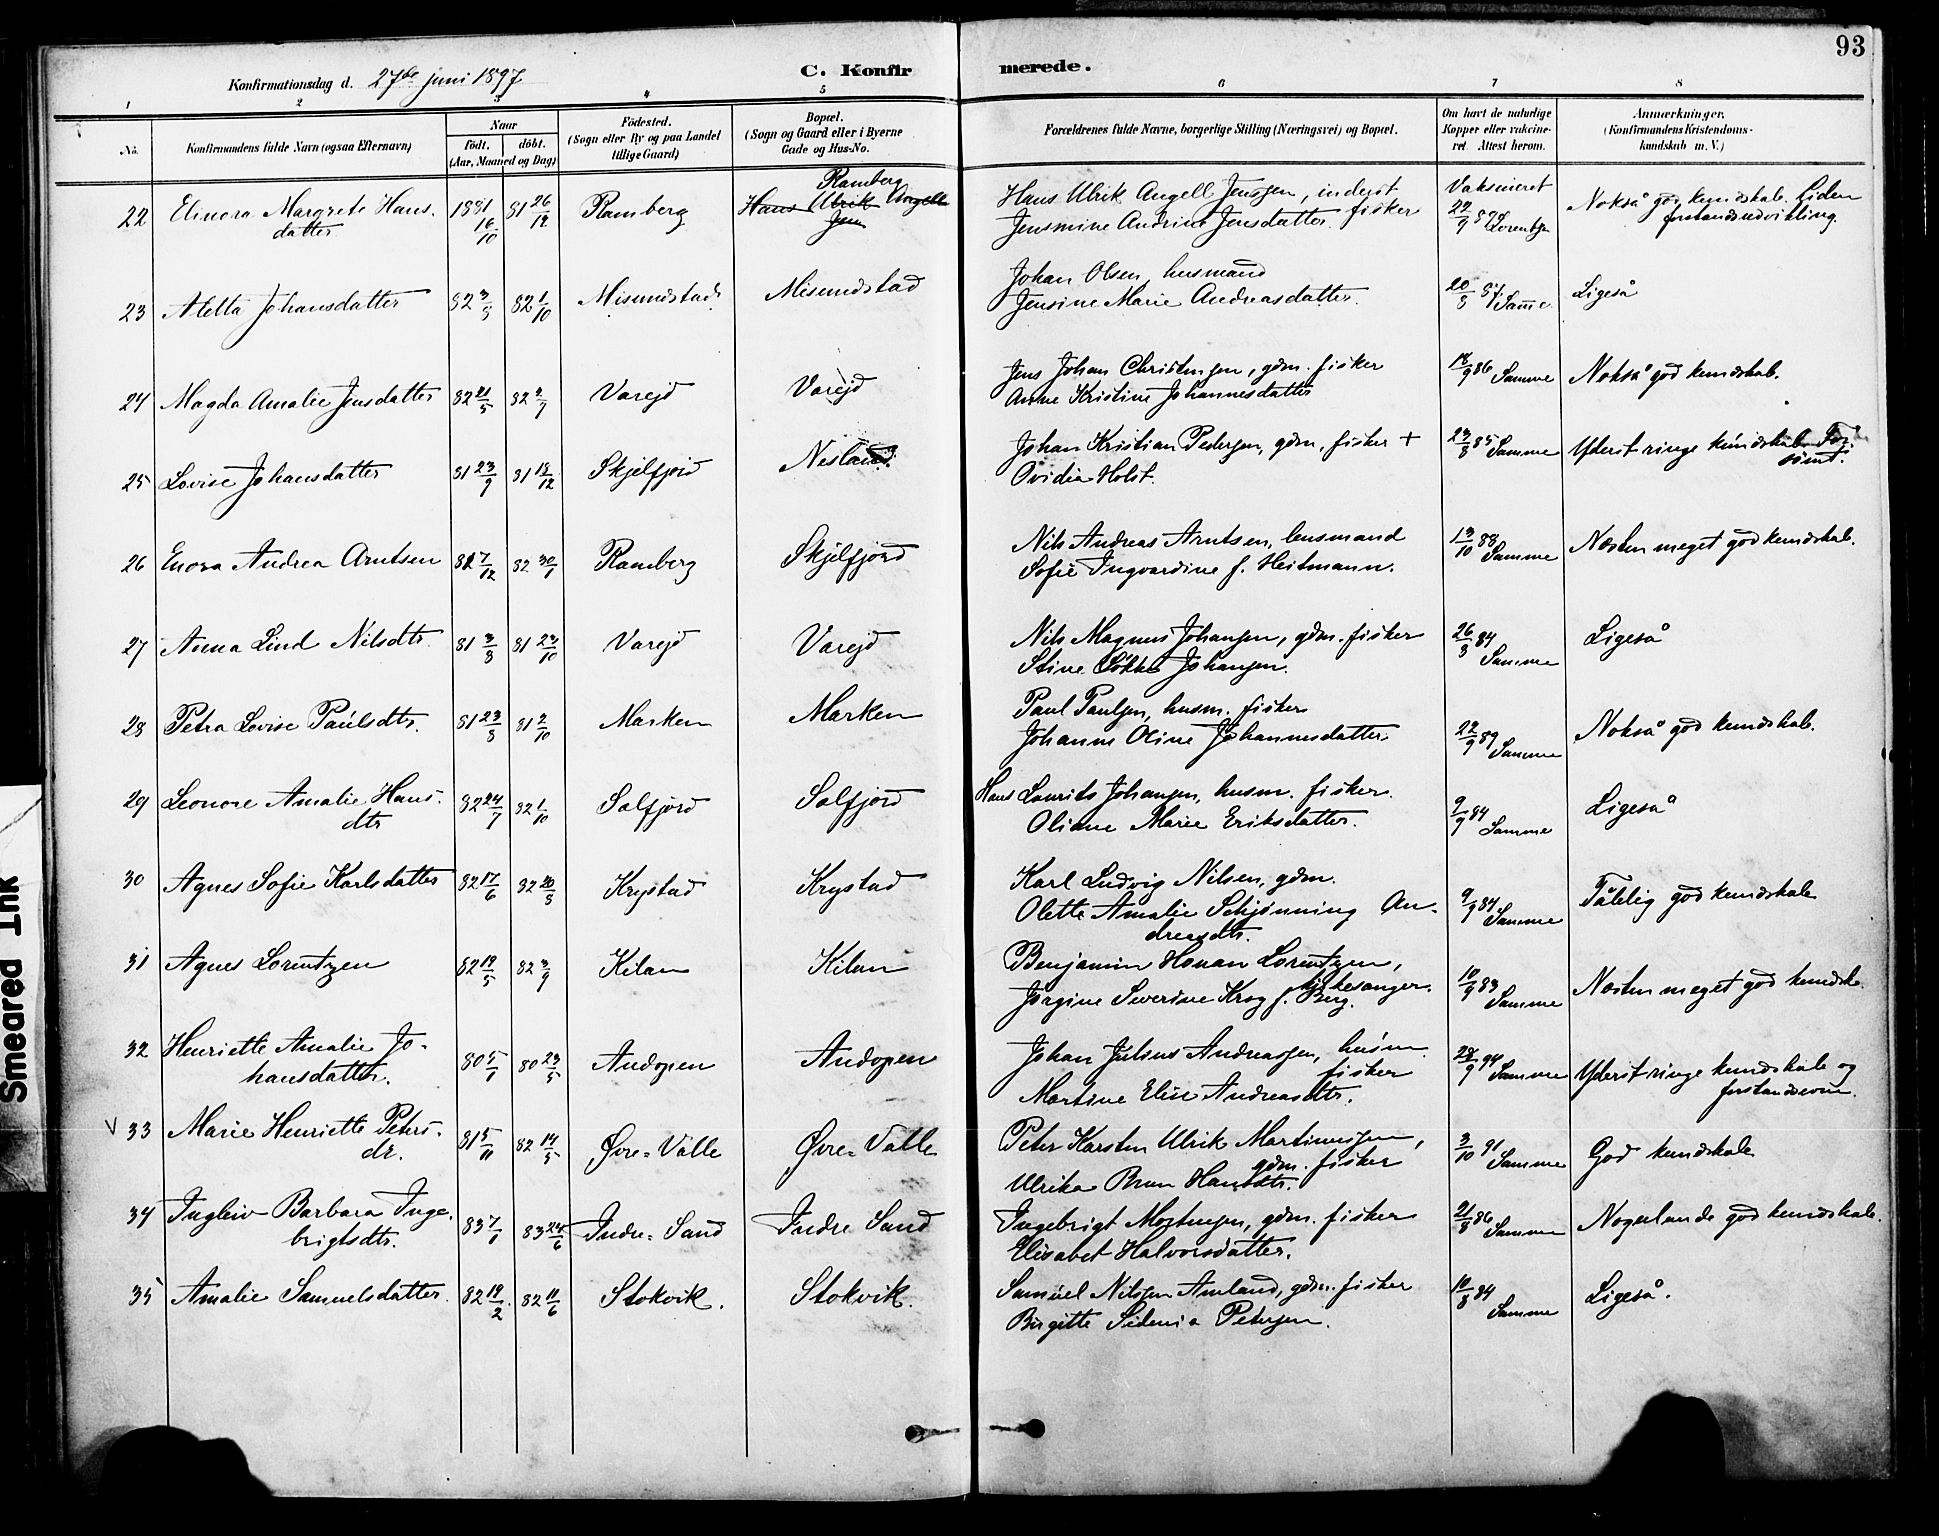 93
Konfirmationsdag d. 27de juni 1897
C. Konfirmerede.
1 2 3 4 5 6 7 8
No. Konfirmandens fulde Navn (ogsaa Efternavn) Naar født. døbt. (Aar, Maaned og Dag) Fødested. (Sogn eller By og paa Landet tillige Gaard) Bopæl. (Sogn og Gaard eller i Byerne Gade og Hus-No. Forældrenes fulde Navne, borgerlige Stilling (Næringsvei) og Bopæl. Om havt de naturlige Kopper eller vaksineret. Attest herom. Anmærkninger. (Konfirmandens Kristendomskundskab m. V.)
22 Elinora Margrete Hansdatter 1881 16/10 81 26/12 Ramberg Ramberg Hans Ulrik Angell Jen Hans Ulrik Angell Jenssen, inderst fisker Vaksineret 22/9 87 Lorentzen Nokså god kundskab. Liden forstandsudvikling.
Jensmine Andrine Jensdatter.
23 Aletta Johansdatter 82 3/8 82 1/10 Misundstad Misundstad Johan Olsen, husmand 20/8 84 Samme Ligeså
Jensine Marie Andreasdatter.
24 Magda Amalie Jensdatter 82 21/5 82 2/7 Vareid Vareid Jens Johan Christensen, gdm. fisker 18/9 86 Samme Nokså god kundskab.
Anne Kristine Johannesdatter
25 Lovise Johansdatter 81 23/9 81 18/12 Skjelfjord Nesland Johan Kristian Pedersen, gdm. fisker + 23/8 85 Samme Yderst ringe kundskab. Forsømt.
Ovidia Holst.
26 Enora Andrea Arntsen 81 7/12 82 30/1 Ramberg Skjelfjord Nils Andreas Arntsen, lensmand 13/10 88 Samme Næsten meget god kundskab.
Sofie Ingvardine f. Heitmann.
27 Anna Lind Nilsdtr. 81 3/8 81 23/10 Vareid Vareid Nils Magnus Johansen, gdm. fisker 26/8 84 Samme Ligeså
Stine Johansen.
28 Petra Lovise Paulsdtr. 81 23/8 81 2/10 Marken Marken Paul Paulsen, husm. fisker 22/9 89 Samme Nokså god kundskab.
Johanne Oline Johannesdatter
29 Leonore Amalie Hansdtr 82 24/7 82 1/10 Solfjord Solfjord Hans Laurits Johansen, husm. fisker. 9/9 84 Samme Ligeså
Oliane Marie Eriksdatter.
30 Agnes Sofie Karlsdatter 82 17/6 82 20/8 Krystad Krystad Karl Ludvig Nilsen, gdm. 9/9 84 Samme Tålelig god kundskab
Olette Amalie Schjønning Andreasdtr.
31 Agnes Lorentzen 82 19/5 82 3/9 Kilan Kilan Benjamin Honan Lorentzen, kirkesanger. 10/9 83 Samme Næsten meget god kundskb.
Jørgine Severine Krog f. Berg.
32 Henriette Amalie Johansdatter. 80 5/1 80 23/5 Andopen Andopen Johan Julius Andreassen, husm. fisker 28/9 94 Samme Yderst ringe kundskab og forstandsevne.
Martine Elise Andreasdtr.
V 33 Marie Henriette Petersdr. 81 5/11 82 14/5 Øvre=Valle Øvre=Valle Peter Karsten Ulrik Martinussen, gdm. fisker 3/10 91 Samme God kundskab
Ulrika Brun Hansdtr.
34 Ingleiv Barbara Ingebrigtsdtr. 83 7/1 83 24/6 Indre=Sand Indre Sand Ingebrigt Mortensen, gdm. fisker 21/8 86 Samme Nogenlunde god kundskab.
Elisabet Halvorsdatter.
35 Amalie Samuelsdatter. 82 19/2 82 11/6 Stokvik. Stokvik. Samuel Nilsen Amland, gdm. fisker 10/8 84 Samme Ligeså.
Birgitte Sidenia Petersen.
Smeared Ink